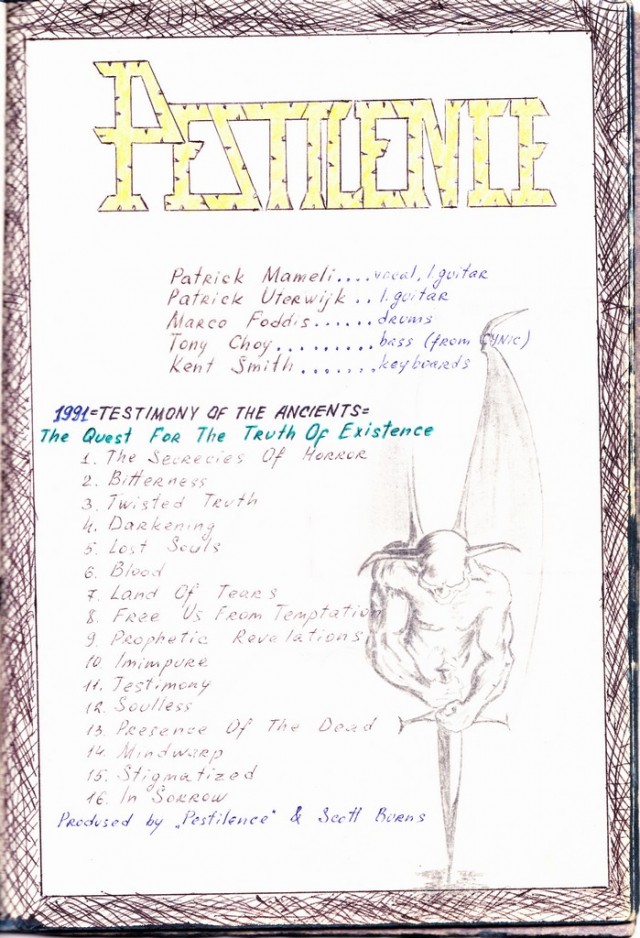 PESTILENCE
Patrick Mameli....vocal, l.guitar
Patrick Uterwijk .. l.guitar
Marco Foddis......drums
Tony Choy.........bass (from CYNIC)
Kent Smith.......keyboards
1991=TESTIMONY OF THE ANCIENTS=
The Quest For The Truth Of Existence
1. The Secrecies Of Horror
2. Bitterness
3. Twisted Truth
4. Darkening
5. Lost Souls
6. Blood
7. Land Of Tears
8. Free Us From Temptation
9. Prophetic Revelations
10. Imimpure
11. Testimony
12. Soulless
13. Presence Of The Dead
14. Mindwarp
15. Stigmatized
16. In Sorrow
Prodused by „Pestilence" & Scott Burns